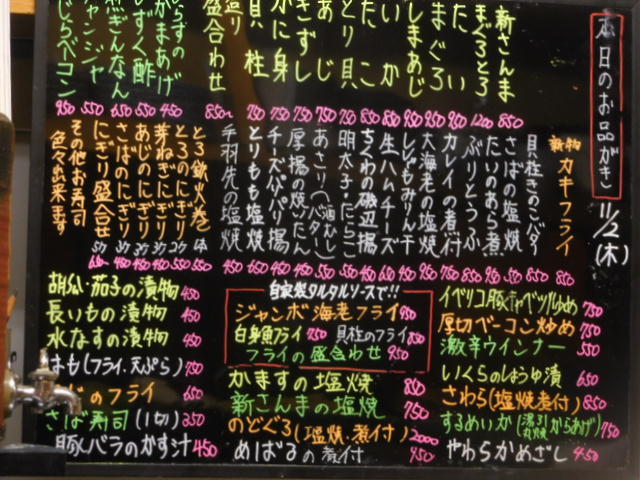 本日のお品がき
11/2(木)
新さんま 850
まぐろとろ 1200
たい 950
まぐろ 950
しまあじ
いか 850
たこ 850
とり貝 750
あじ 750
きずし 750
かに身 750
貝柱 750
造り盛合わせ 850~
らずの
かまあげ 450
しずく酢 550
ぎんなん 650
ジャンジャ 550
じらベーコン 950
新物カキフライ 850
貝柱きのこバター
さばの塩焼
たいのあら煮
ぶりとうふ
カレイの煮付
大海老の塩焼
ししゃもみりん干
生ハムチーズ
ちくわの磯辺揚
明太子・たらこ
あさり(酒むし・バター)
厚揚の焼いたん
チーズパパリ揚
とりもも塩焼
手羽先の塩焼
とろ鉄火巻
とろのにぎり
芽ねぎにぎり
あじのにぎり
さばのにぎり
にぎり盛合せ
その他お寿司色々出来ます
胡瓜・茄子の漬物 450
長いもの漬物 450
水なすの漬物 450
はも(フライ、天ぷら) 750
のフライ 650
さば寿司(1切) 350
豚バラのかす汁 450
自家製タルタルソースで!!
ジャンボ海老フライ 950
白身魚フライ 750 貝柱のフライ 850
フライの盛合わせ 950
かますの塩焼 850
新さんまの塩焼 750
のどぐろ(塩焼・煮付) 2000
めばるの煮付 950
イベリコ豚キャベツ炒め 750
厚切ベーコン炒め 750
激辛ウインナー 550
いくらのしょうゆ漬 650
さわら(塩焼・煮付) 850
するめいか(湯引・丸焼・からあげ) 750
やわらかめざし 450